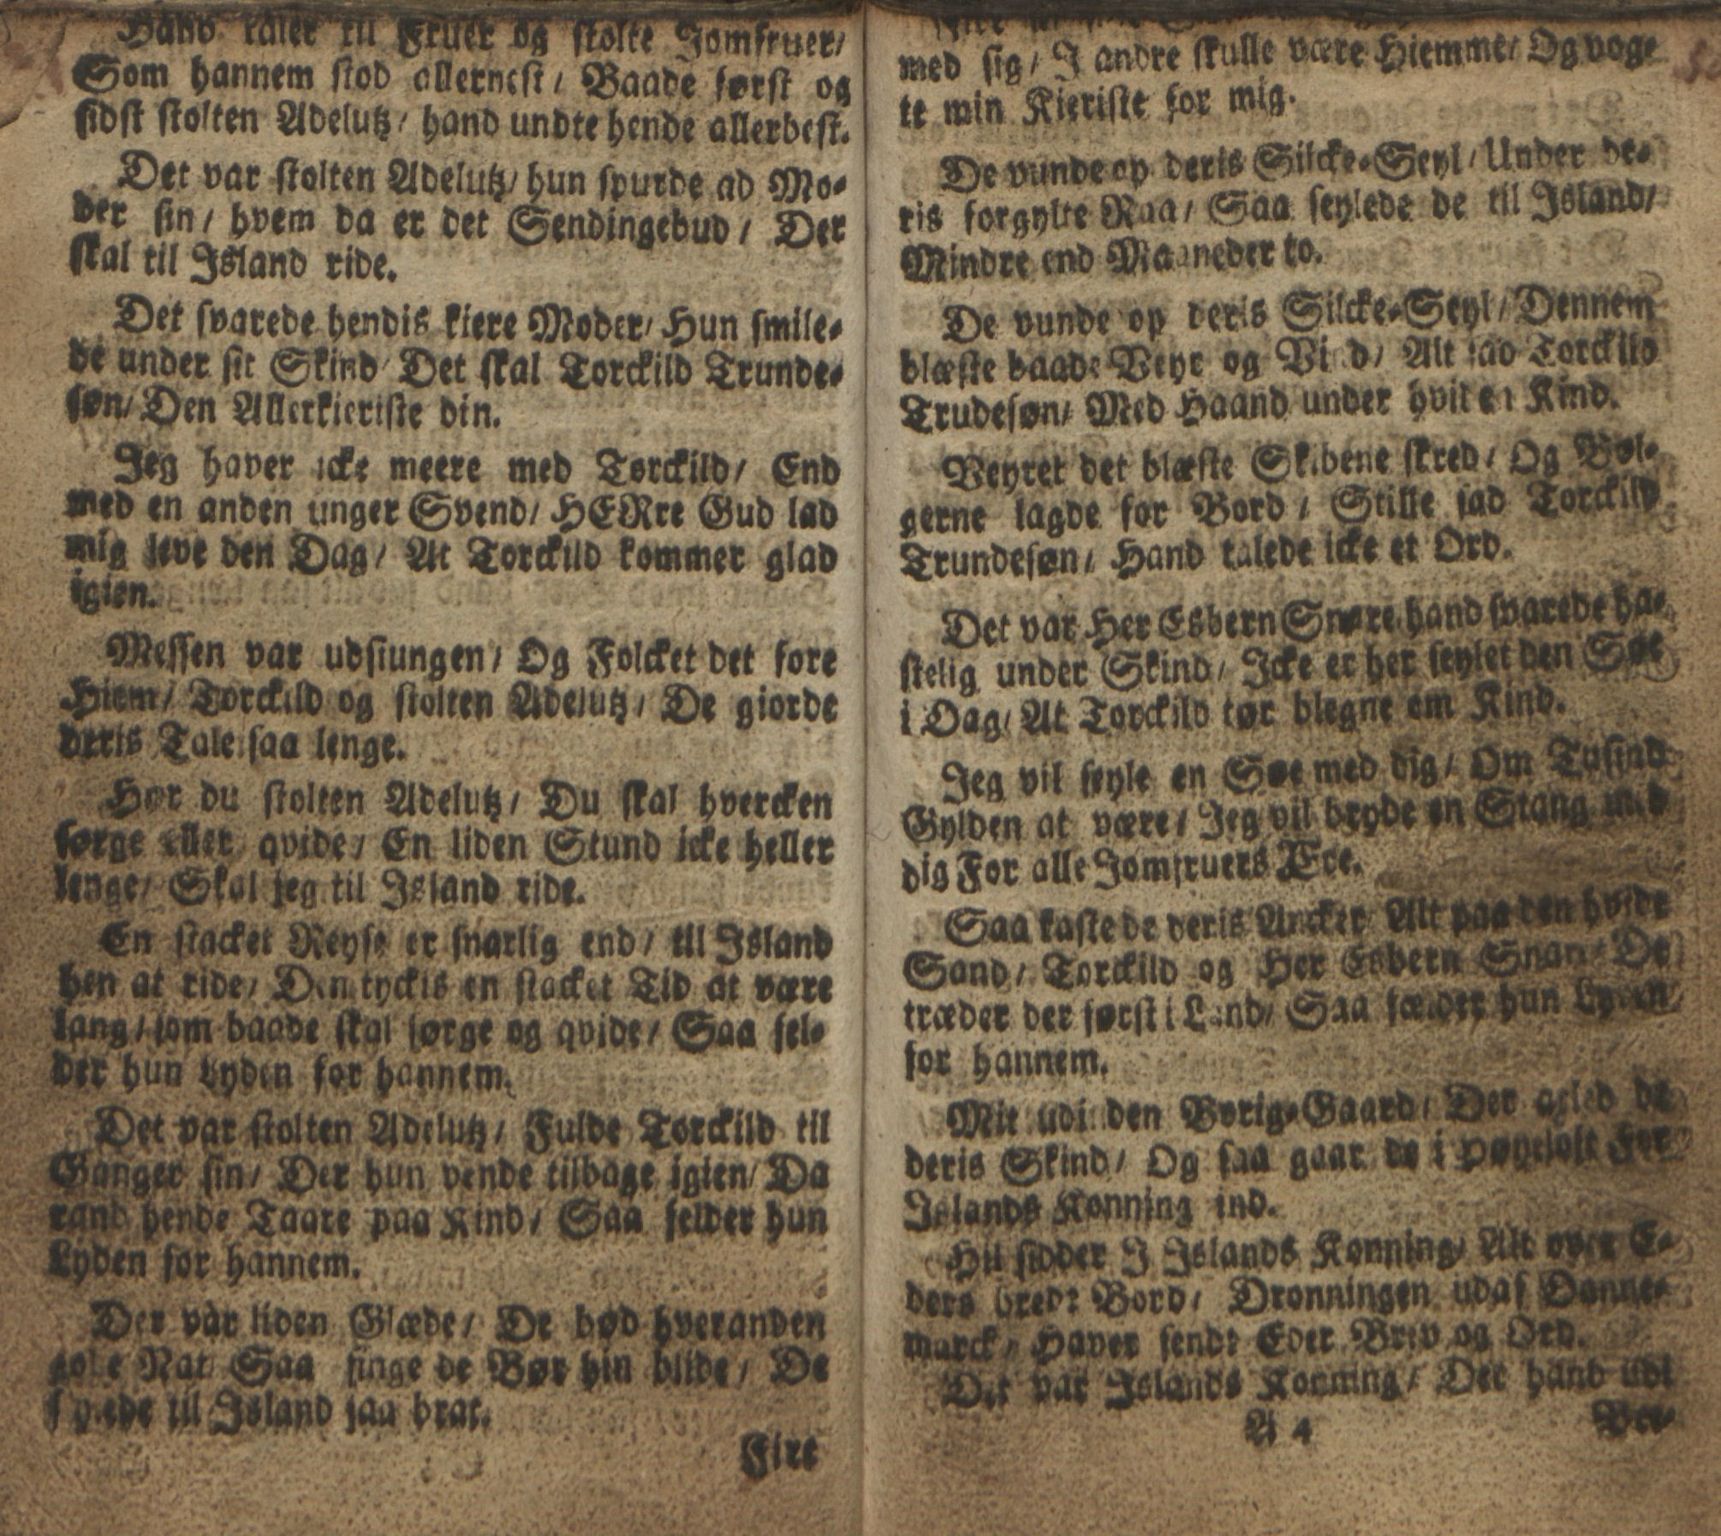 Hand taler til Fruer og stolte Jomfruer/
Som hannem stod allernest/ Baade først og
sidst stolten Adelutz/ hand undte hende allerbest.
Det var stolten Adelutz/ hun spurde ad Mo-
der sin/ hvem da er det Sendingebud/ Der
skal til Island ride.
Det svarede hendis kiere Moder/ Hun smile-
de under sit Skind/ Det skal Torckild Trunde-
søn/ Den Allerkieriste din.
Jeg haver icke meere med Torckild/ End
med en anden unger Svend/ HERre Gud lad
mig leve den Dag/ At Torckild kommer glad
igien.
Messen var udsiungen/ Og Folcket det fore
Hiem/ Torckild og stolten Adelutz/ De giorde
deris Tale saa lenge.
Hør du stolten Adelutz/ Du skal hvercken
sørge eller qvide/ En liden Stund icke heller
lenge/ Skal jeg til Island ride.
En stacket Reyse er snarlig end/ til Island
hen at ride/ Den tyckis en stacket Tid at være
lang/ som baade skal sørge og qvide/ Saa fel-
der hun Lyden for hannem.
Det var stolten Adelutz/ Fulde Torckild til
Ganger sin/ Der hun vende tilbage igien/ Da
rand hende Taare paa Kind/ Saa felder hun
Lyden for hannem.
Der var liden Glæde/ De bød hveranden
gode Nat/ Saa finge de Bør hin blide/ De
seylede til Island saa brat.
Fire
med sig/ I andre skulle være Hiemme/ Og vog-
te min Kieriste for mig.
De vunde op deris Silcke-Seyl/ Under de-
ris forgylte Raa/ Saa seylede de til Island/
Mindre end Maaneder to.
De vunde op deris Silcke-Seyl/ Dennem
blæste baade Veyr og Vind/ Alt sad Torckild
Trudesøn/ Med Haand under hviten Kind.
Veyret det blæste Skibene skred/ Og Bøl-
gerne lagde for Bord/ Stille sad Torckild
Trundesøn/ Hand talede icke et Ord.
Det var Her Esbern Snare/ hand svarede ha-
stelig under Skind/ Icke er her seylet den Søe
i Dag/ At Torckild tør blegne om Kind.
Jeg vil seyle en Søe med dig/ Om Tusind
Gylden at være/ Jeg vil bryde en Stang med
dig For alle Jomfruers Ære.
Saa kastede deris Ancker/ Alt paa den hvide
Sand/ Torckild og Her Esbern Snare/ De
træder der først i Land/ Saa fælder hun Lyden
for hannem.
Mit udi den Borig-Gaard/ Der axled de
deris Skind/ Og saa gaar de i Høyeloft For
Islands Konning ind.
Hil sidder I Islands Konning/ Alt over E-
ders brede Bord/ Dronningen udaf Danne-
marck/ Haver sendt Eder Brev og Ord.
Det var Islands Konning/ Det hand udi
A 4
Bre-